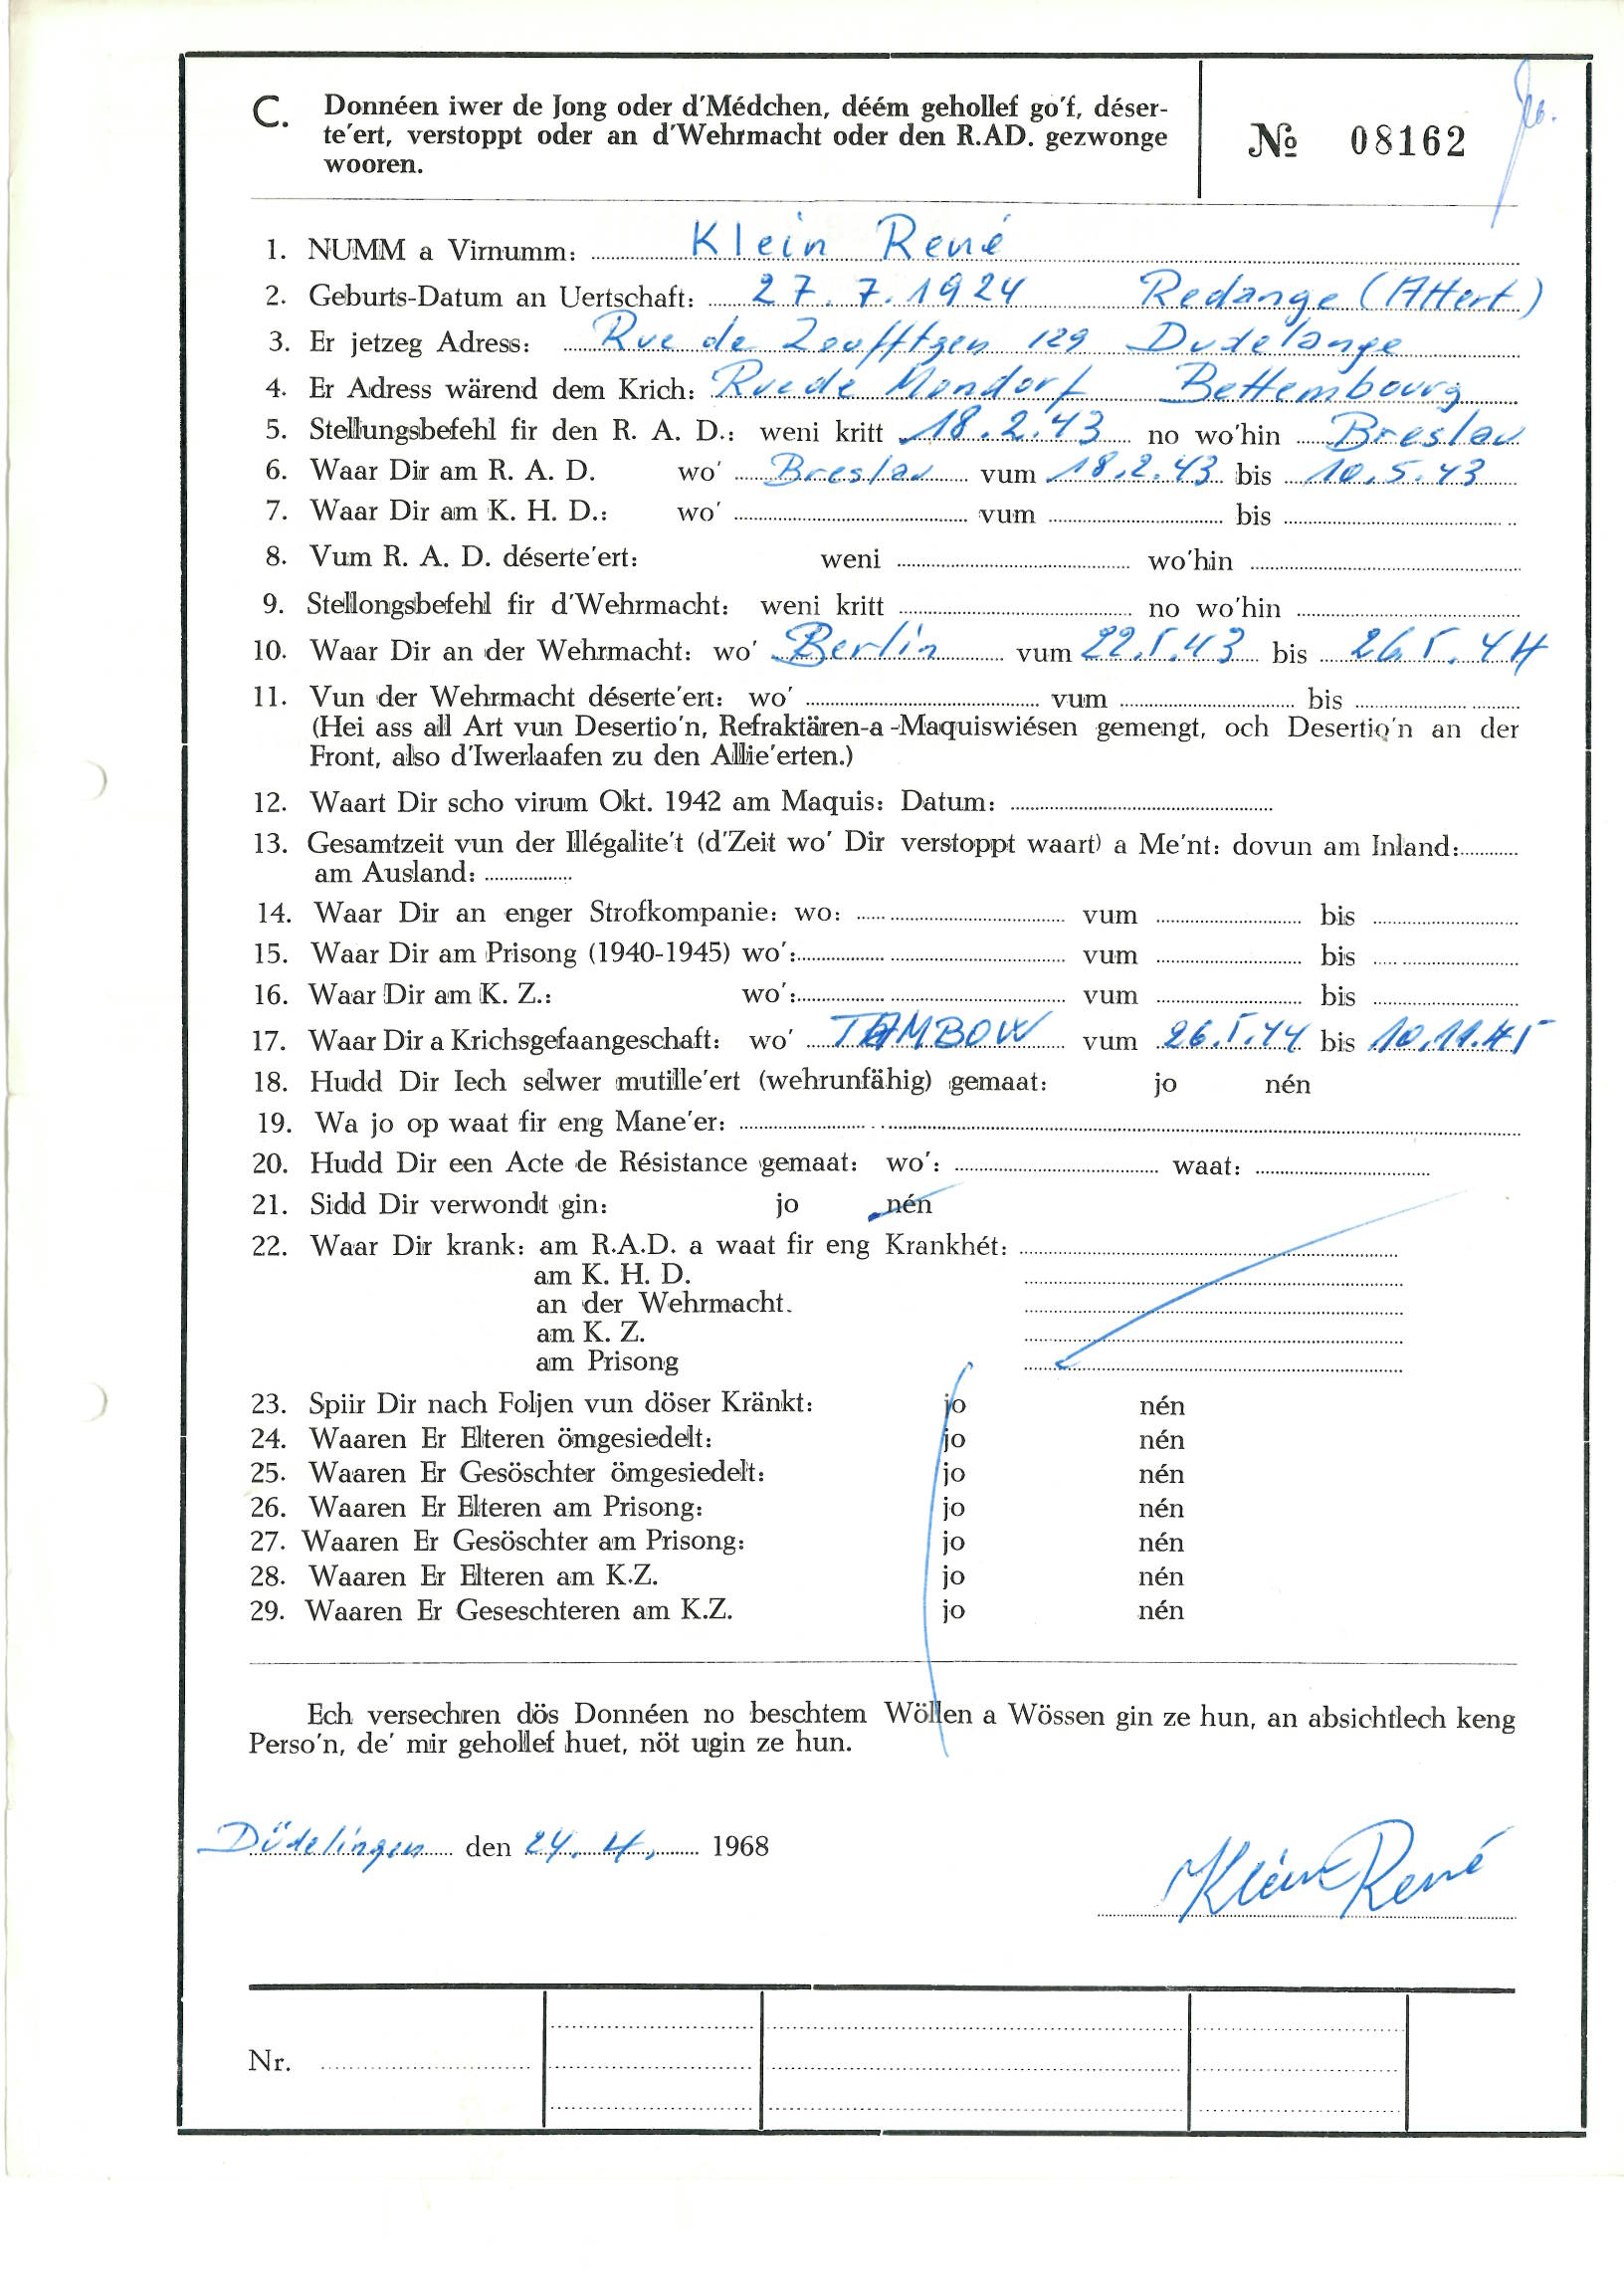 C. Donnéen iwer de Jong oder d'Médchen, déém gehollef go'f, déser-
te'ert, verstoppt oder an d'Wehrmacht oder den R.AD. gezwonge
wooren.
№ 08162
1. NUMM a Virnumm: Klein René
2. Geburts-Datum an Uertschaft: 27.7.1924 Redange (Attert)
3. Er jetzeg Adress: Rue de Zoufftgen 129 Dudelange
4. Er Adress wärend dem Krich: Rue de Mondorf Bettembourg
5. Stellungsbefehl fir den R. A. D.: weni kritt 18.2.43 no wo'hin Breslau
6. Waar Dir am R. A. D. wo' Breslau vum 18.2.43 bis 10.5.43
7. Waar Dir am K. H. D.: wo' vum bis
8. Vum R. A. D. déserte'ert: weni wo'hin
9. Stellongsbefehl fir d'Wehrmacht: weni kritt no wo'hin
10. Waar Dir an der Wehrmacht: wo' Berlin vum 22.5.43 bis 26.5.44
11. Vun der Wehrmacht déserte'ert: wo' vum bis
(Hei ass all Art vun Desertio'n, Refraktären-a-Maquiswiésen gemengt, och Desertio'n an der
Front, also d'Iwerlaafen zu den Allie'erten.)
12. Waart Dir scho virum Okt. 1942 am Maquis: Datum:
13. Gesamtzeit vun der Illégalite't (d'Zeit wo' Dir verstoppt waart) a Me'nt: dovun am Inland:
am Ausland:
14. Waar Dir an enger Strofkompanie: wo: vum bis
15. Waar Dir am Prisong (1940-1945) wo': vum bis
16. Waar Dir am K. Z.: wo': vum bis
17. Waar Dir a Krichsgefaangeschaft: wo' TAMBOW vum 26.5.44 bis 10.11.45
18. Hudd Dir Iech selwer mutille'ert (wehrunfähig) gemaat: jo nén
19. Wa jo op waat fir eng Mane'er:
20. Hudd Dir een Acte de Résistance gemaat: wo': waat:
21. Sidd Dir verwondt gin: jo nén
22. Waar Dir krank: am R.A.D. a waat fir eng Krankhét:
am K. H. D.
an der Wehrmacht.
am K. Z.
am Prisong
23. Spiir Dir nach Foljen vun döser Kränkt: jo nén
24. Waaren Er Elteren ömgesiedelt: jo nén
25. Waaren Er Gesöschter ömgesiedelt: jo nén
26. Waaren Er Elteren am Prisong: jo nén
27. Waaren Er Gesöschter am Prisong: jo nén
28. Waaren Er Elteren am K.Z. jo nén
29. Waaren Er Geseschteren am K.Z. jo nén
Ech versechren dös Donnéen no beschtem Wöllen a Wössen gin ze hun, an absichtlech keng
Perso'n, de' mir gehollef huet, nöt ugin ze hun.
Düdelingen den 24.4. 1968
Klein René
Nr.